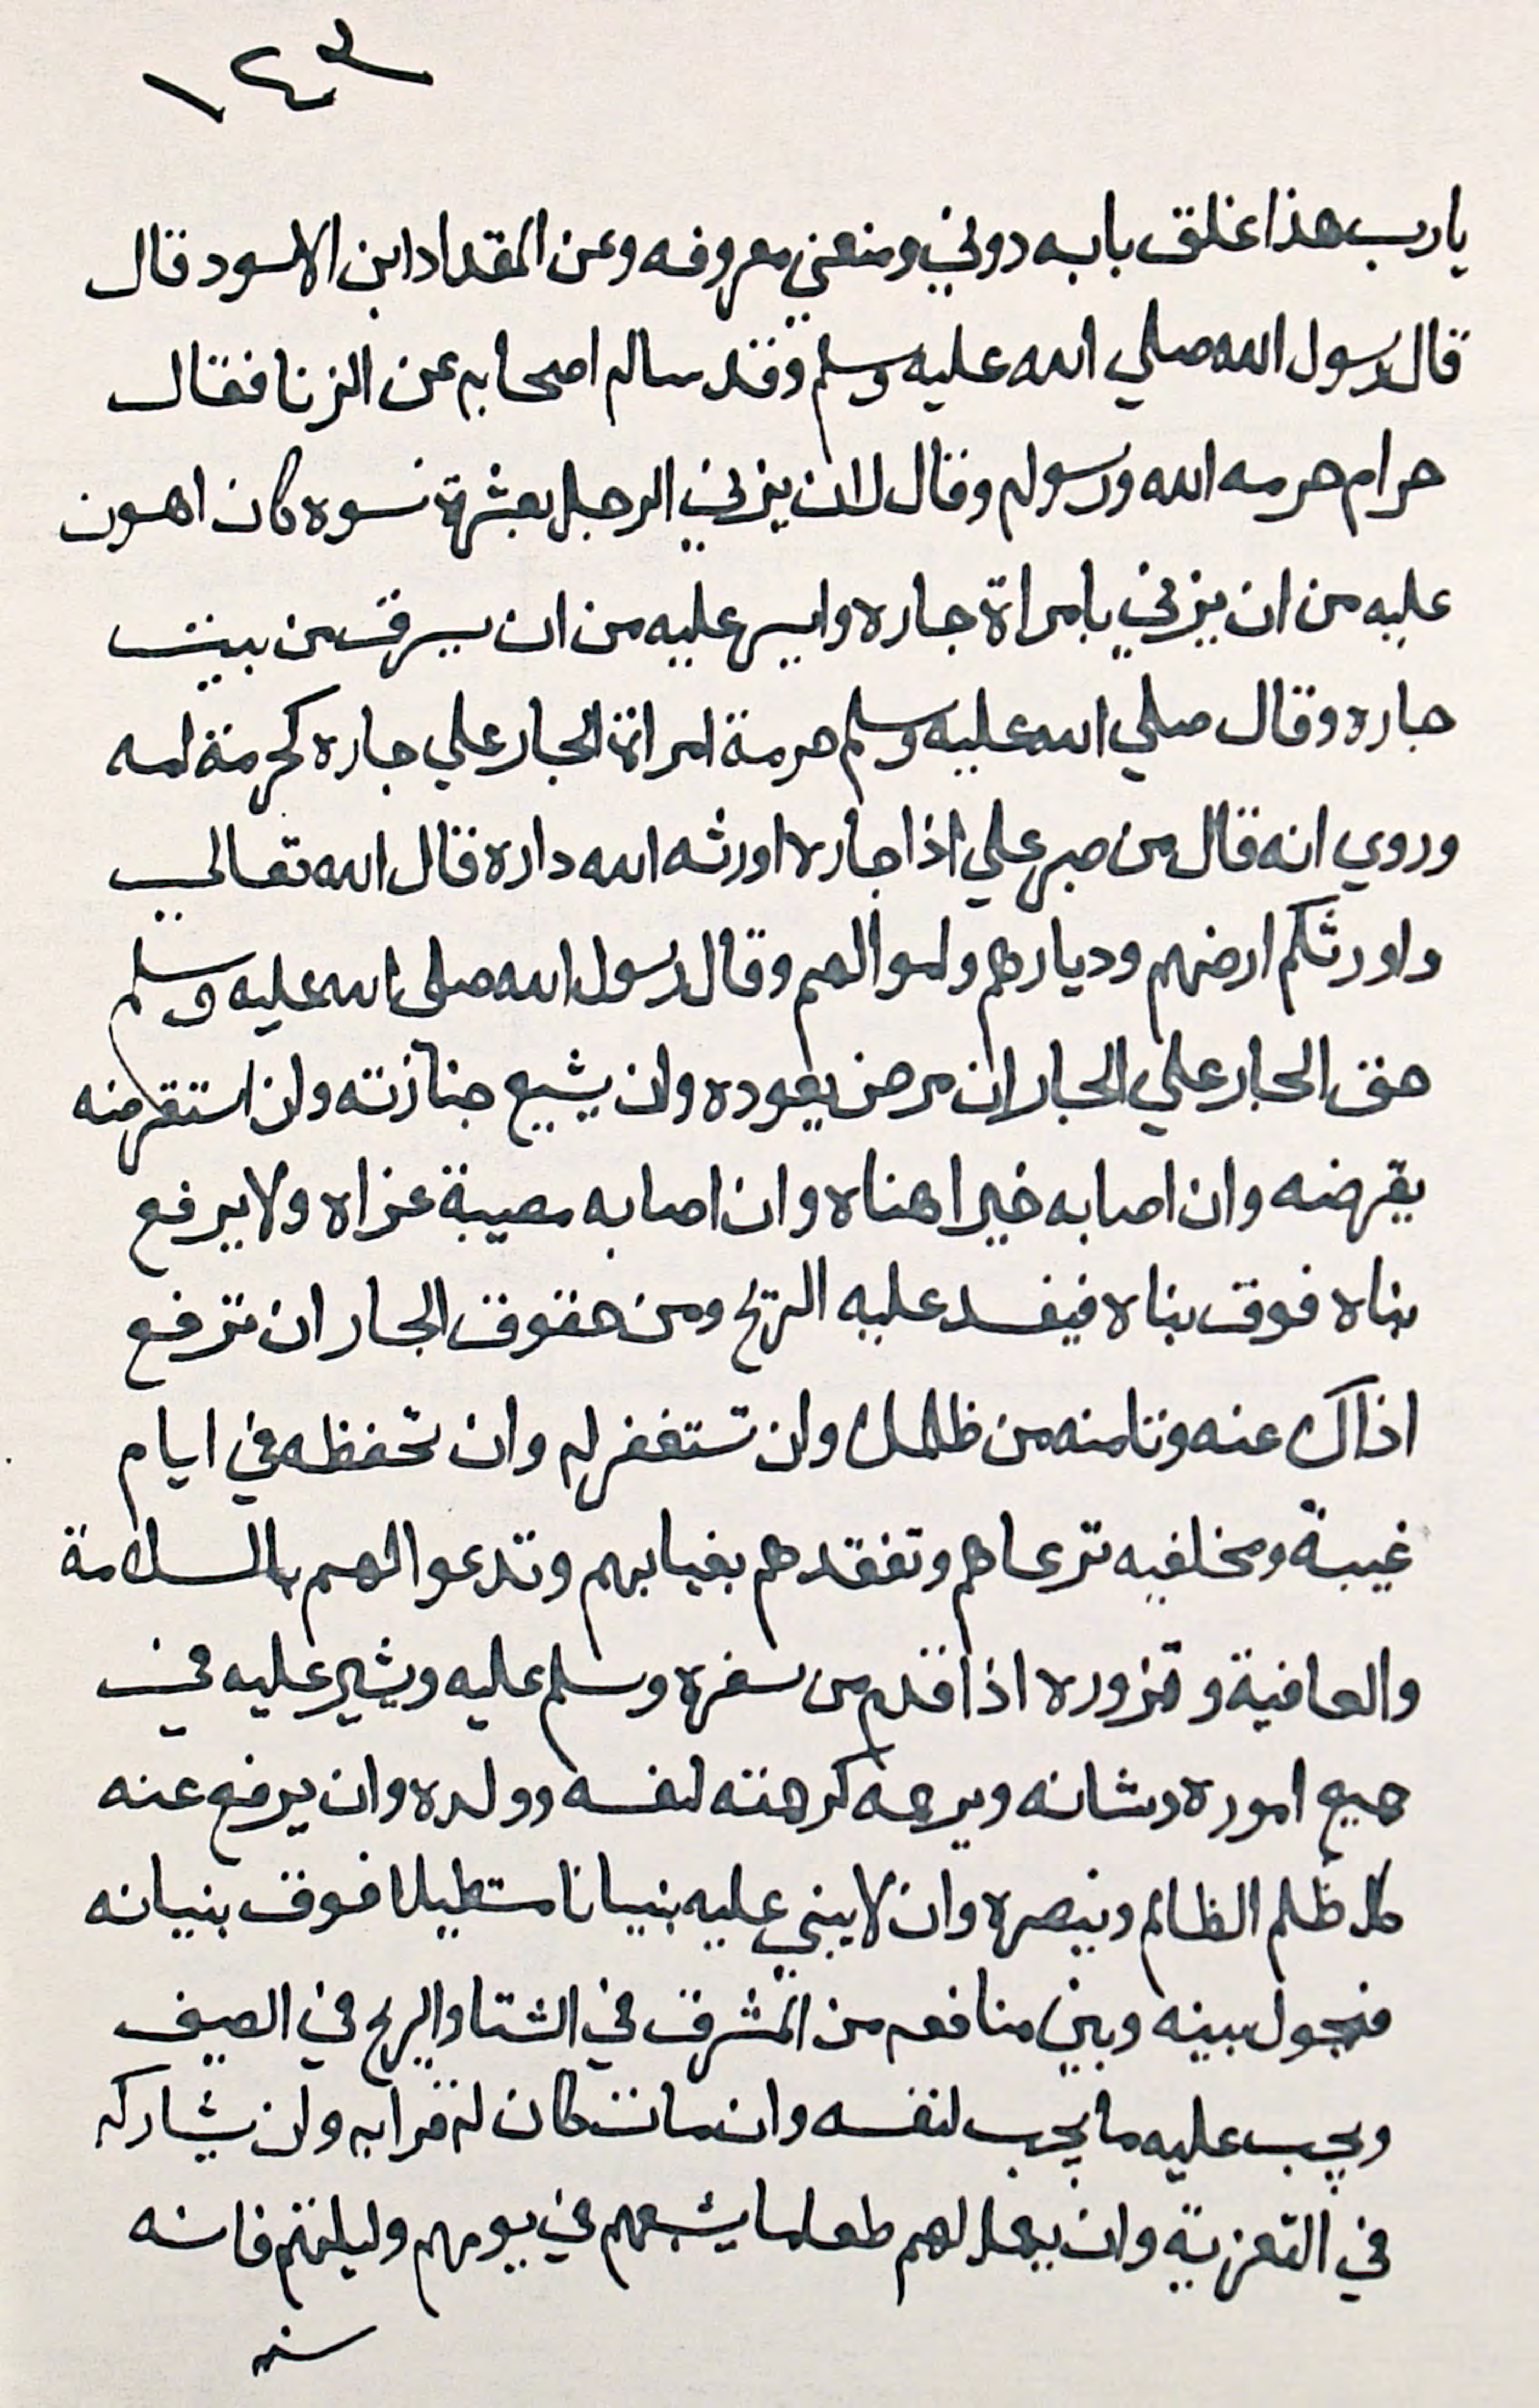 ١٤٣
يارب هذا غلق بابه دوني ومنعني معروفه وعن المقداد ابن الاسود قال
قال رسول الله صلي الله عليه وسلم وقد ساله اصحابه عن الزنا فقال
حرام حرمه الله ورسوله وقال لان يزني الرجل بعشرة نسوه كان اهون
عليه من ان يزني بامراة جاره وايسر عليه من ان يسرق من بيت
جاره وقال صلي الله عليه وسلم حرمة امراة الجار علي جاره كحرمة امه
وروي انه قال من صبر علي اذا جاره اورثه الله داره قال الله تعالي
واورثكم ارضهم وديارهم واموالهم وقال رسول الله صلى الله عليه وسلم
حق الجار علي الجار ان مرض يعوده وان يشيع جنازته وان استقرضه
يقرضه وان اصابه خيرا هناه وان اصابه مصيبة عزاه ولا يرفع
بناه فوق بناه فيفسد عليه الريح ومن حقوق الجار ان ترفع
اذاك عنه وتامنه من ظلمك وان تستغفر له وان تحفظه في ايام
غيبة ومخلفيه ترعاهم وتفقدهم بغيابهم وتدعوا لهم بالسلامة
والعافية وتزوره اذا قدم من سفره وسلم عليه ويشير عليه في
جميع اموره وشانه ويرحمه كرحمته لنفسه وولده وان يرفع عنه
كل ظلم الظالم وينصره وان لا يبني عليه بنيانا مستطيلا فوق بنيانه
فيحول بينه وبين منافعه من المشرق في الشتا والريح في الصيف
ويحب عليه ما يحب لنفسه وان مات كان له قرابه وان يشاركه
في التعزية وان يعمل لهم طعاما يشبعهم في يومهم وليلتهم فانه